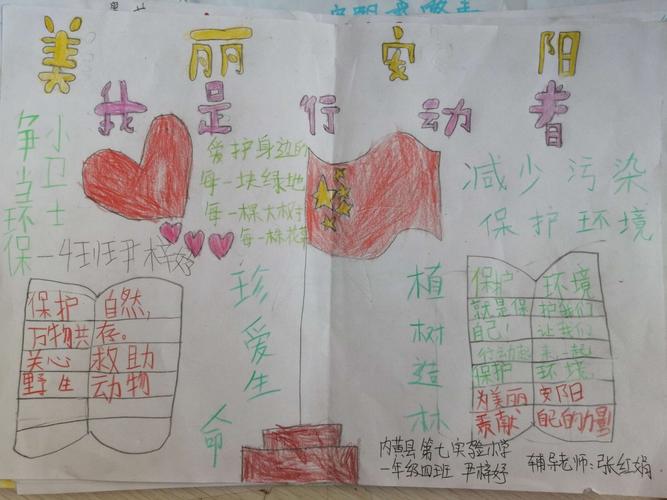 美丽安阳
我是行动者
争当环保
小卫士
一4班尹梓妤
爱护身边的
每一块绿地
每一棵大树
每一棵花草
减少污染
保护环境
珍爱生命
植树造林
保护 自然,
万物共存。
关心 救助
野生 动物
保护 环境
就是保护我们
自己! 让我们
行动起来一起
保护 环境
为美丽 安阳
贡献 自己的力量
内黄县第七实验小学
一年级四班 尹梓妤
辅导老师:张红娟